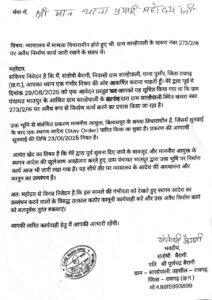 सेवा में, श्री मान थाना प्रभारी महोदय जी
विषय: न्यायालय में मामला विचाराधीन होते हुए भी ग्राम साल्हेपाली के खसरा नंबर 273/2/क
पर अवैध निर्माण कार्य जारी रखने के संबंध में।
महोदय,
सविनय निवेदन है कि मैं, संतोषी बैरागी, निवासी ग्राम साल्हेपाली, थाना पुसौर, जिला रायगढ़
(छ.ग.), आपका ध्यान एक गंभीर विषय की ओर आकर्षित कराना चाहती हूँ। मेरे द्वारा पूर्व में
दिनांक 29/08/2025 को एक आवेदन प्रस्तुत कर यह सूचित किया गया था कि ग्राम
पंचायत भाठनपाली के आश्रित ग्राम साल्हेपाली के सरपंच द्वारा ग्राम साल्हेपाली स्थित खसरा नंबर
273/2/क पर अवैध रूप से निर्माण कार्य करने का प्रयास किया जा रहा है।
उक्त भूमि से संबंधित प्रकरण माननीय आयुक्त, बिलासपुर के समक्ष विचाराधीन है, जिसमें सुनवाई
के बाद एक स्थगन आदेश (Stay Order) पारित किया जा चुका है। प्रकरण की आगामी
सुनवाई की तिथि 23/09/2025 नियत है।
अत्यंत खेद का विषय है कि मेरे द्वारा पूर्व सूचना दिए जाने के बावजूद और माननीय आयुक्त के
स्थगन आदेश की खुलेआम अवहेलना करते हुए, ग्राम पंचायत भाठनपाली द्वारा उक्त भूमि पर निर्माण
कार्य आज भी जारी रखा गया है। यह सीधे तौर पर न्यायालय के आदेश की अवमानना और
कानून का उल्लंघन है।
अतः महोदय से विनम्र निवेदन है कि इस मामले की गंभीरता को देखते हुए स्थगन आदेश का
उल्लंघन करने वालों के विरुद्ध तत्काल कठोर कानूनी कार्यवाही करें और उक्त अवैध निर्माण कार्य
को बलपूर्वक तुरंत रुकवाएं।
आपकी त्वरित कार्यवाही हेतु मैं आपकी आभारी रहूँगी।
संतोषी बैरागी
भवदीय,
संतोषी बैरागी
पति श्री पूर्णचंद्र बैरागी
ग्राम – साल्हेपाली, तहसील – रायगढ़,
जिला – रायगढ़ (छ.ग.)
मो. नं. 9815993899